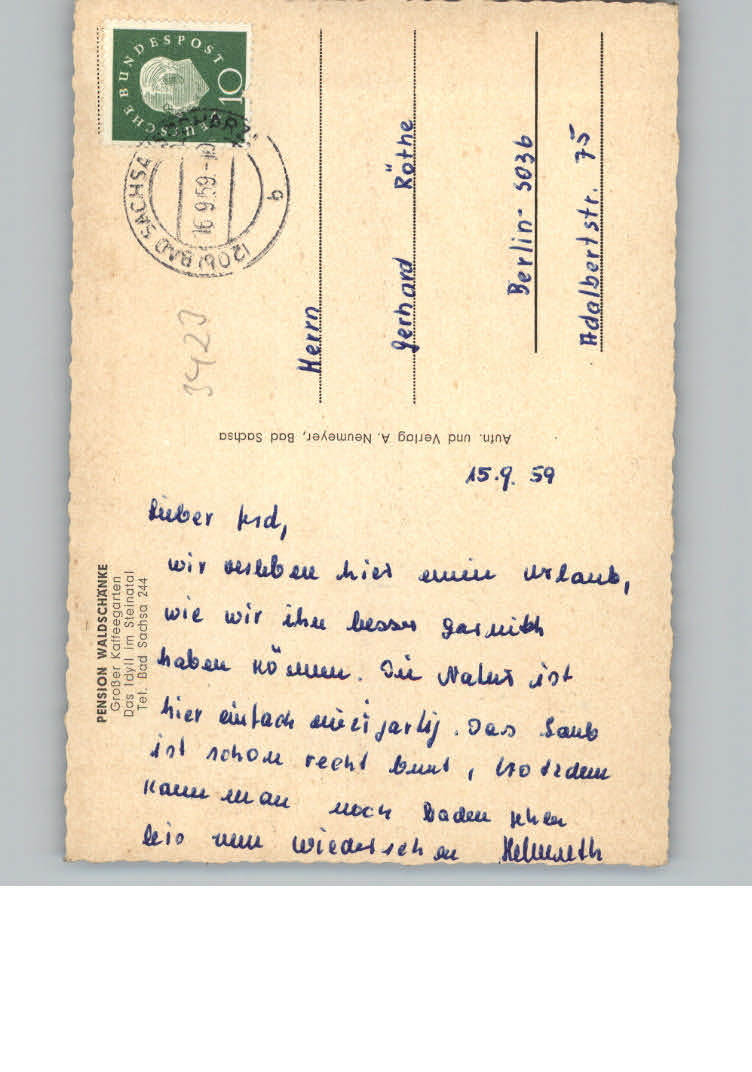 DEUTSCHE BUNDESPOST
10
(20b) BAD SACHSA
16.9.59.-10
a
3423
Herrn
Gerhard Röthe
Berlin-SO36
Adalbertstr. 75
Aufn. und Verlag A. Neumeyer, Bad Sachsa
PENSION WALDSCHÄNKE
Großer Kaffeegarten
Das Idyll im Steinatal
Tel. Bad Sachsa 244
15.9.59
Lieber Gerd,
wir verleben hier einen Urlaub,
wie wir ihn besser garnich
haben können. Die Natur ist
hier einfach einzigartig. Das Laub
ist schon recht bunt, trotzdem
kann man noch Baden gehen
bis zum wiedersehen Helmuth